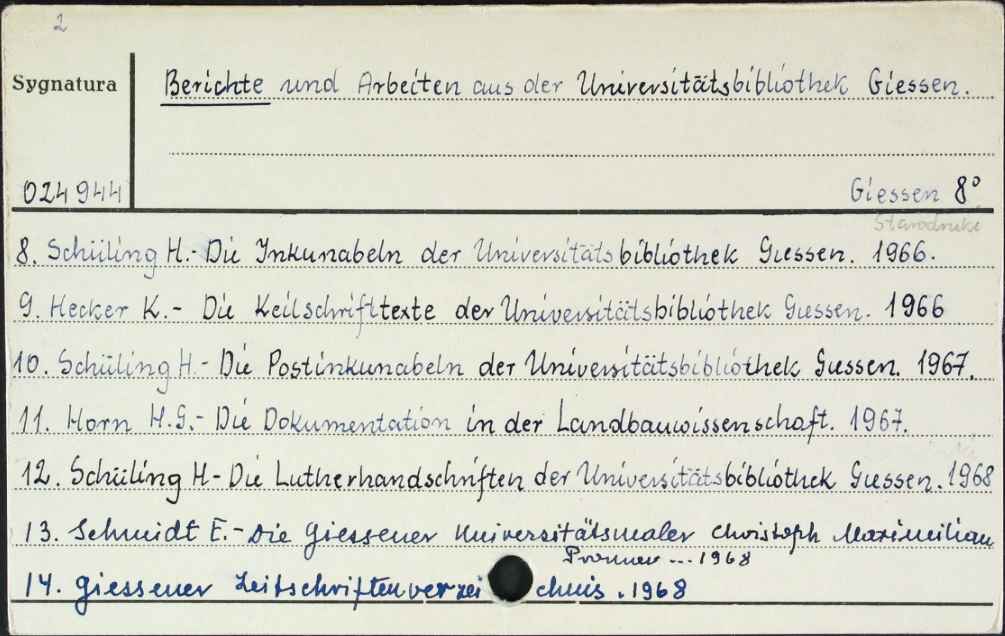 2
Sygnatura
Berichte und Arbeiten aus der Universitätsbibliothek Giessen.
024944
Giessen 8°
Starodruki
8. Schüling H.- Die Inkunabeln der Universitätsbibliothek Giessen. 1966.
9. Hecker K.- Die Keilschrifttexte der Universitätsbibliothek Giessen. 1966
10. Schüling H.- Die Postinkunabeln der Universitätsbibliothek Giessen. 1967.
11. Horn H.G.- Die Dokumentation in der Landbauwissenschaft. 1967.
12. Schüling H- Die Lutherhandschriften der Universitätsbibliothek Giessen. 1968
13. Schmidt E.- Die Giessener Universitätsmaler Christoph Maximilian
... 1968
14. Giessener Zeitschriftenverzeichnis . 1968